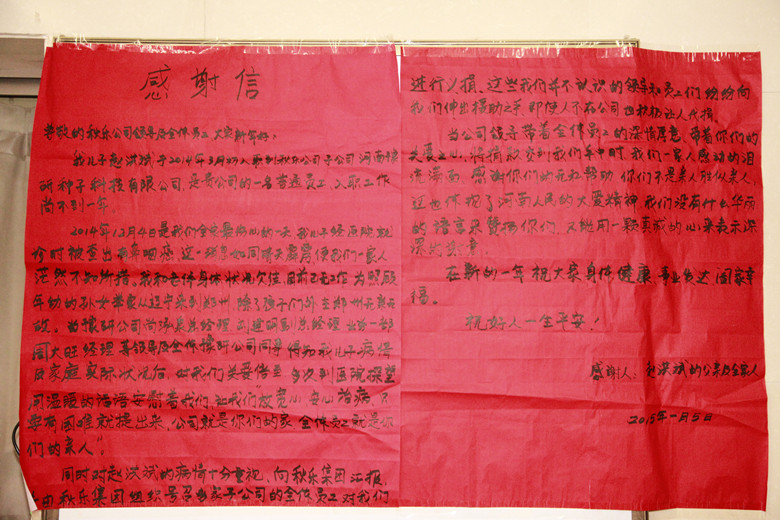 感谢信
尊敬的秋乐公司领导及全体员工大家新年好:
我儿子赵洪斌于2014年3月份入职到秋乐公司子公司河南豫
研种子科技有限公司,是贵公司的一名普通员工,入职工作
尚不到一年。
2014年12月4日是我们全家
诊时被查出患鼻咽癌,这一残事如同晴天霹雳使我们一家人
茫然不知所措。我和老伴身体状况欠佳,目前已无工作为照顾
年幼的孙女举家从辽宁来到郑州,除了孩子们外在郑州无亲无
故。当豫研公司尚泓泉总经理、刘建明副总经理、业务一部
周大旺经理等领导及全体豫研公司同事得知我儿子病情
及家庭实际状况后,对我们关爱备至,多次到医院探望
用温暖的话语安慰着我们,让我们"放宽心,安心治病,只
要有困难就提出来,公司就是你们的家,全体员工就是你
们的亲人"。
同时对赵洪斌的病情十分重视,向秋乐集团汇报,
由秋乐集团组织号召各家子公司的全体员工对我们
进行义捐,这些我们并不认识的领导和员工们纷纷向
我们伸出援助之手,即使人不在公司也积极让人代捐。
当公司领导带着全体员工的深情厚意,带着你们的
关爱之心,将捐款交到我们手中时,我们一家人感动的泪
流满面,感谢你们的无私帮助,你们不是亲人胜似亲人,
这也体现了河南人民的大爱精神,我们没有什么华丽
的语言来赞扬你们,只能用一颗真诚的心来表示深
深的谢意。
在新的一年祝大家身体健康,事业发达,阖家幸
福。
祝好人一生平安!
感谢人:赵洪斌的父亲及全家人
2015年一月5日